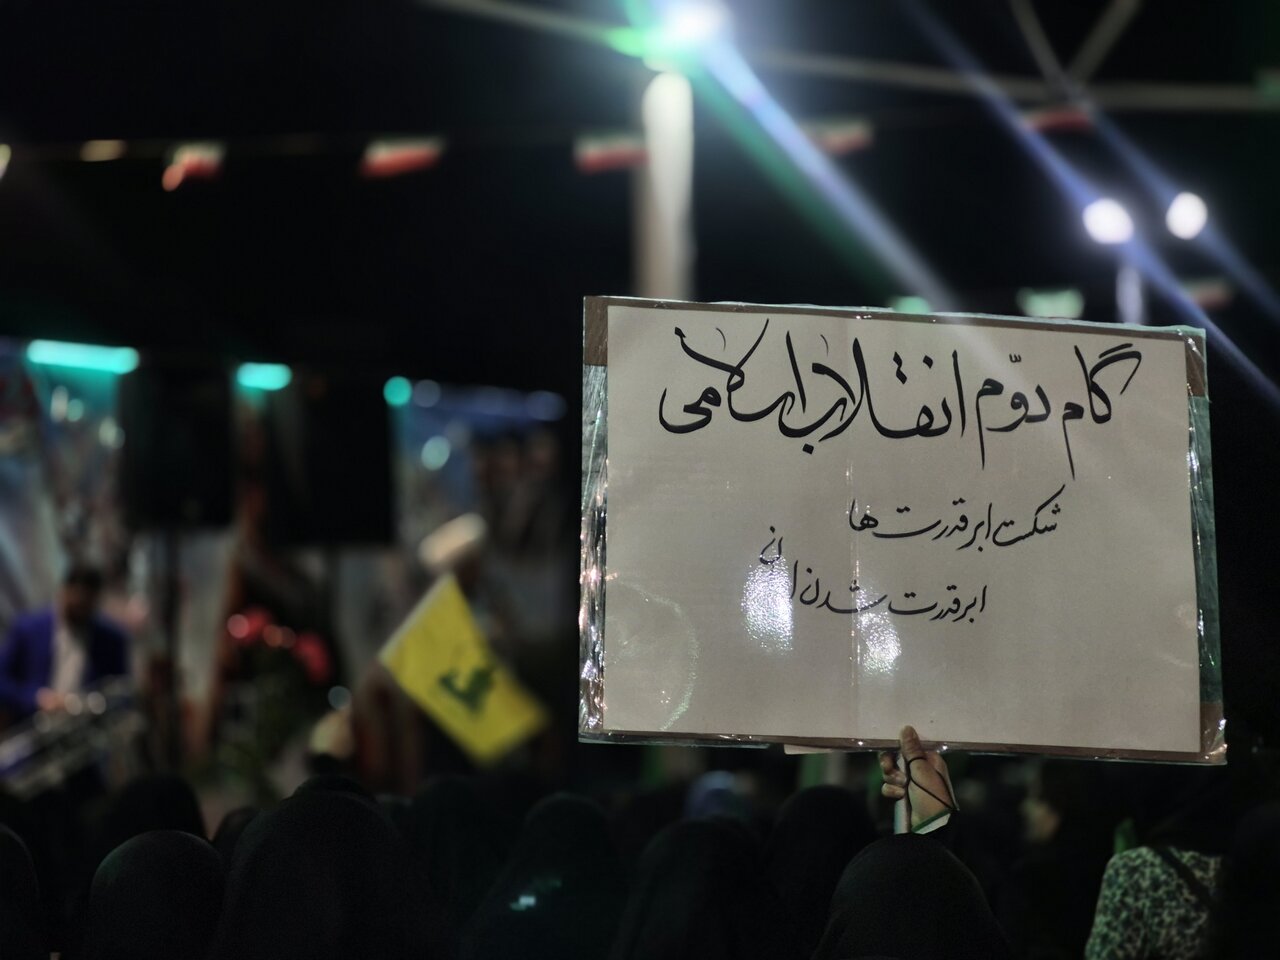 گام دوّم انقلاب اسلامی
شکست ابرقدرت ها
ابرقدرت شدن ایران